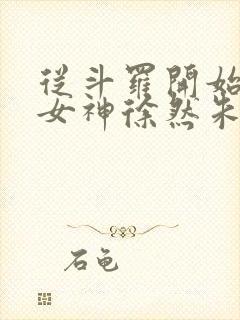 從斗羅開始
女神徐然朱
石龟